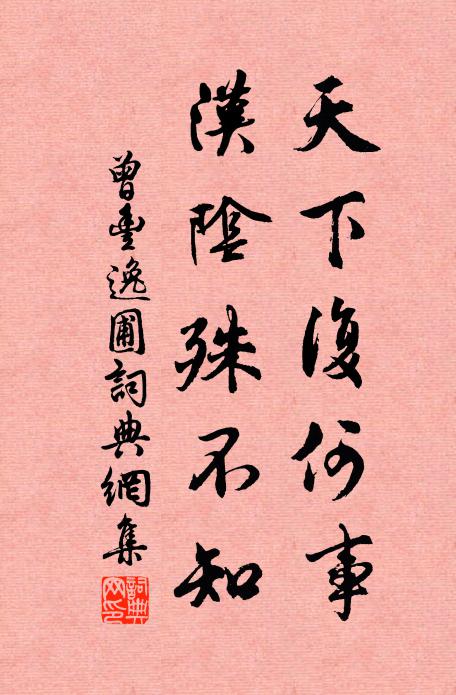 天下復何事
漢陰殊不知
曾豐逸圃詞典網集
詞典網印